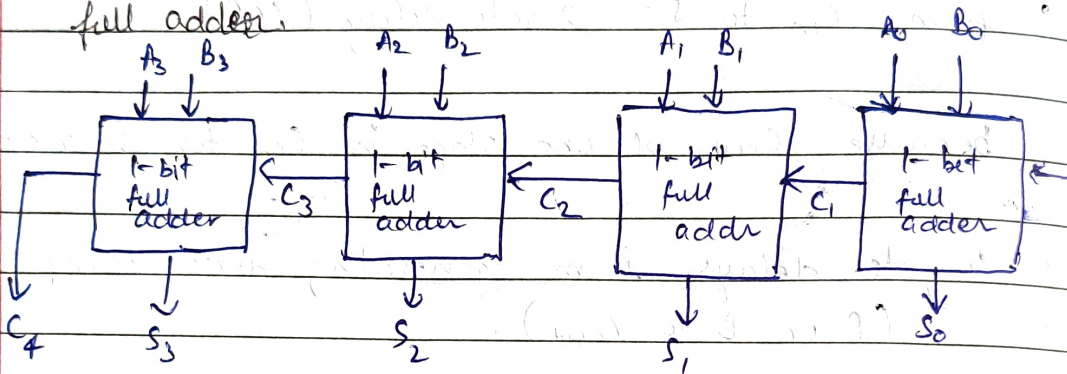 full adder.
A3 B3 A2 B2 A1 B1 A0 B0
1-bit full adder
1-bit full adder
1-bit full addr
1-bet full adder
C3 C2 C1
C4 S3 S2 S1 S0